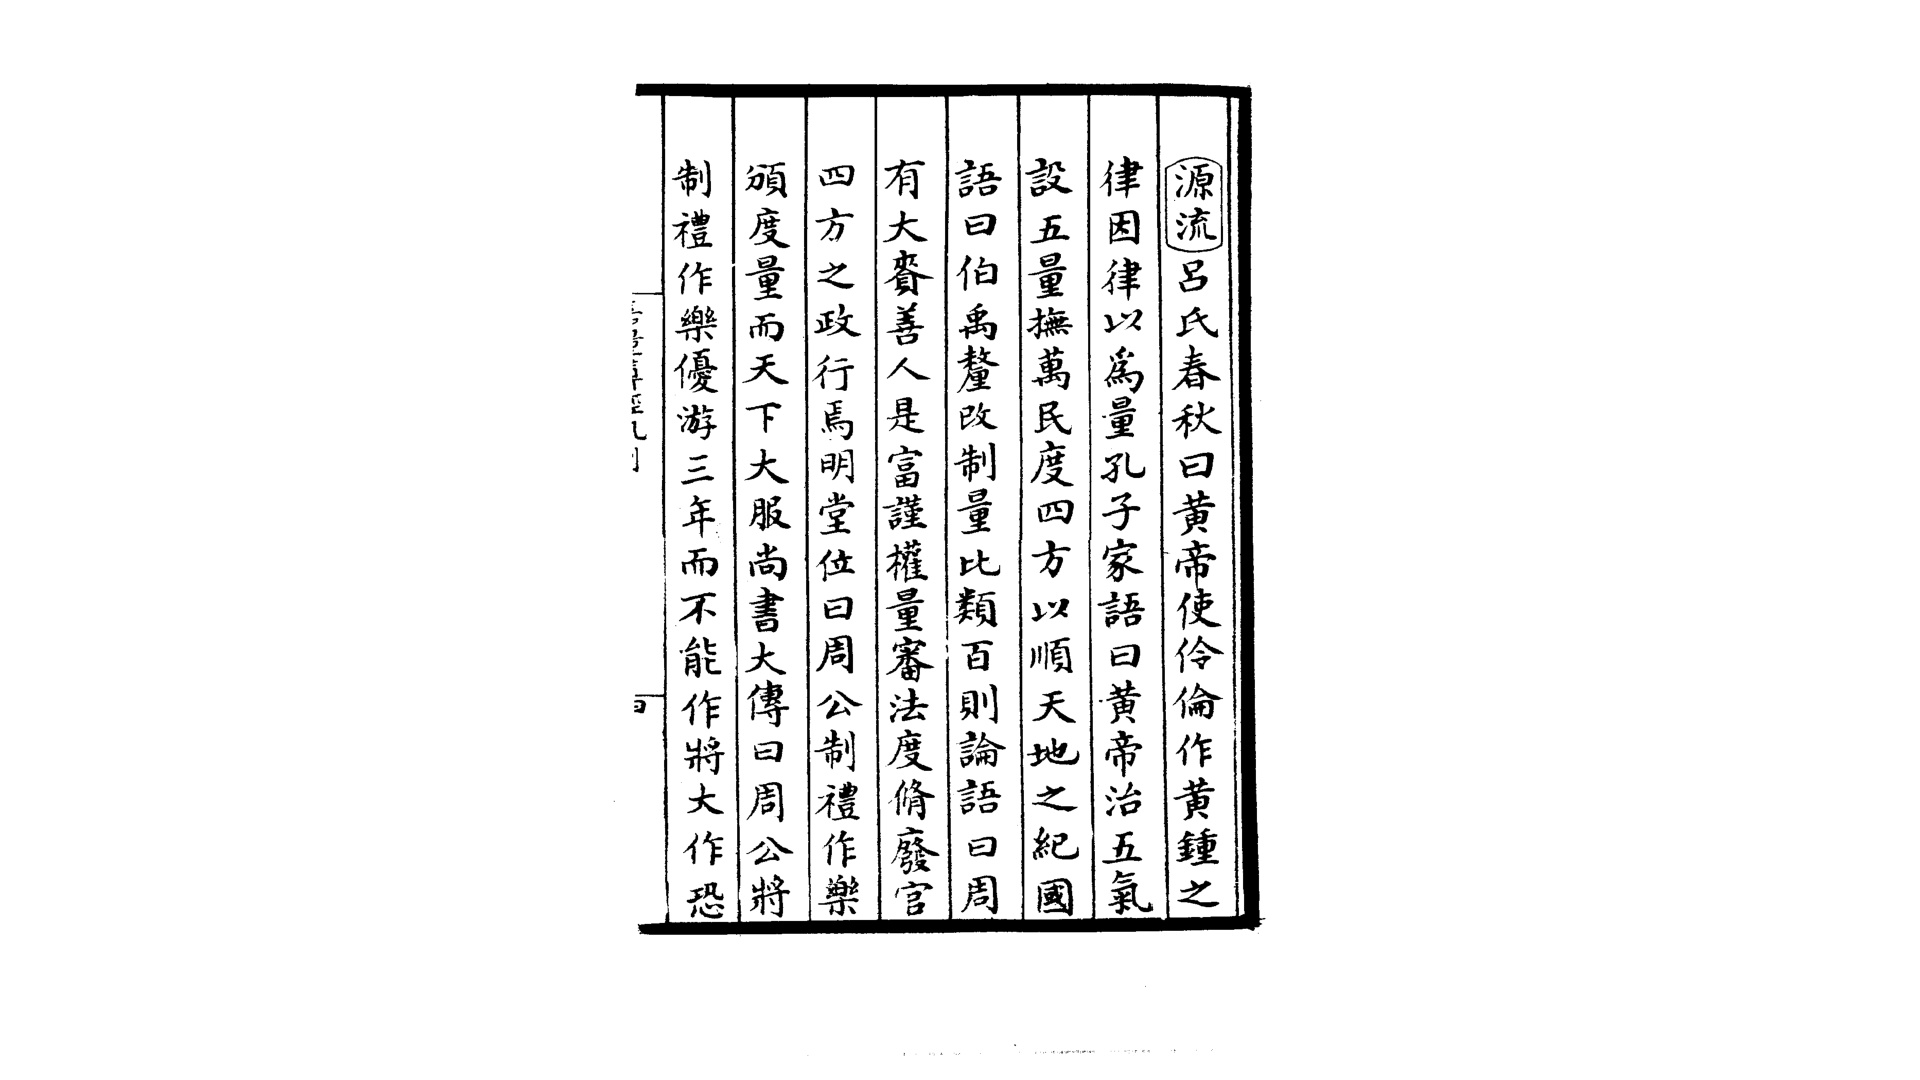 源流呂氏春秋曰黄帝使伶倫作黄鍾之
律因律以為量孔子家語曰黄帝治五氣
設五量撫萬民度四方以順天地之紀國
語曰伯禹釐改制量比類百則論語曰周
有大賚善人是富謹權量審法度脩廢官
四方之政行焉明堂位曰周公制禮作樂
頒度量而天下大服尚書大傳曰周公將
制禮作樂優游三年而不能作將大作恐